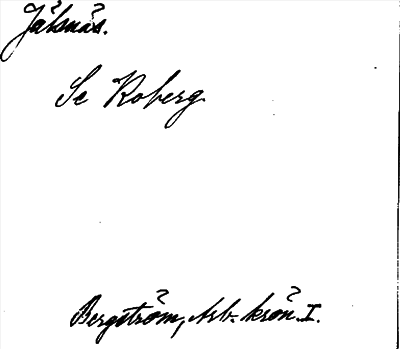 Jälsnäs.
Se Koberg
Bergström, Arb. krön. I.